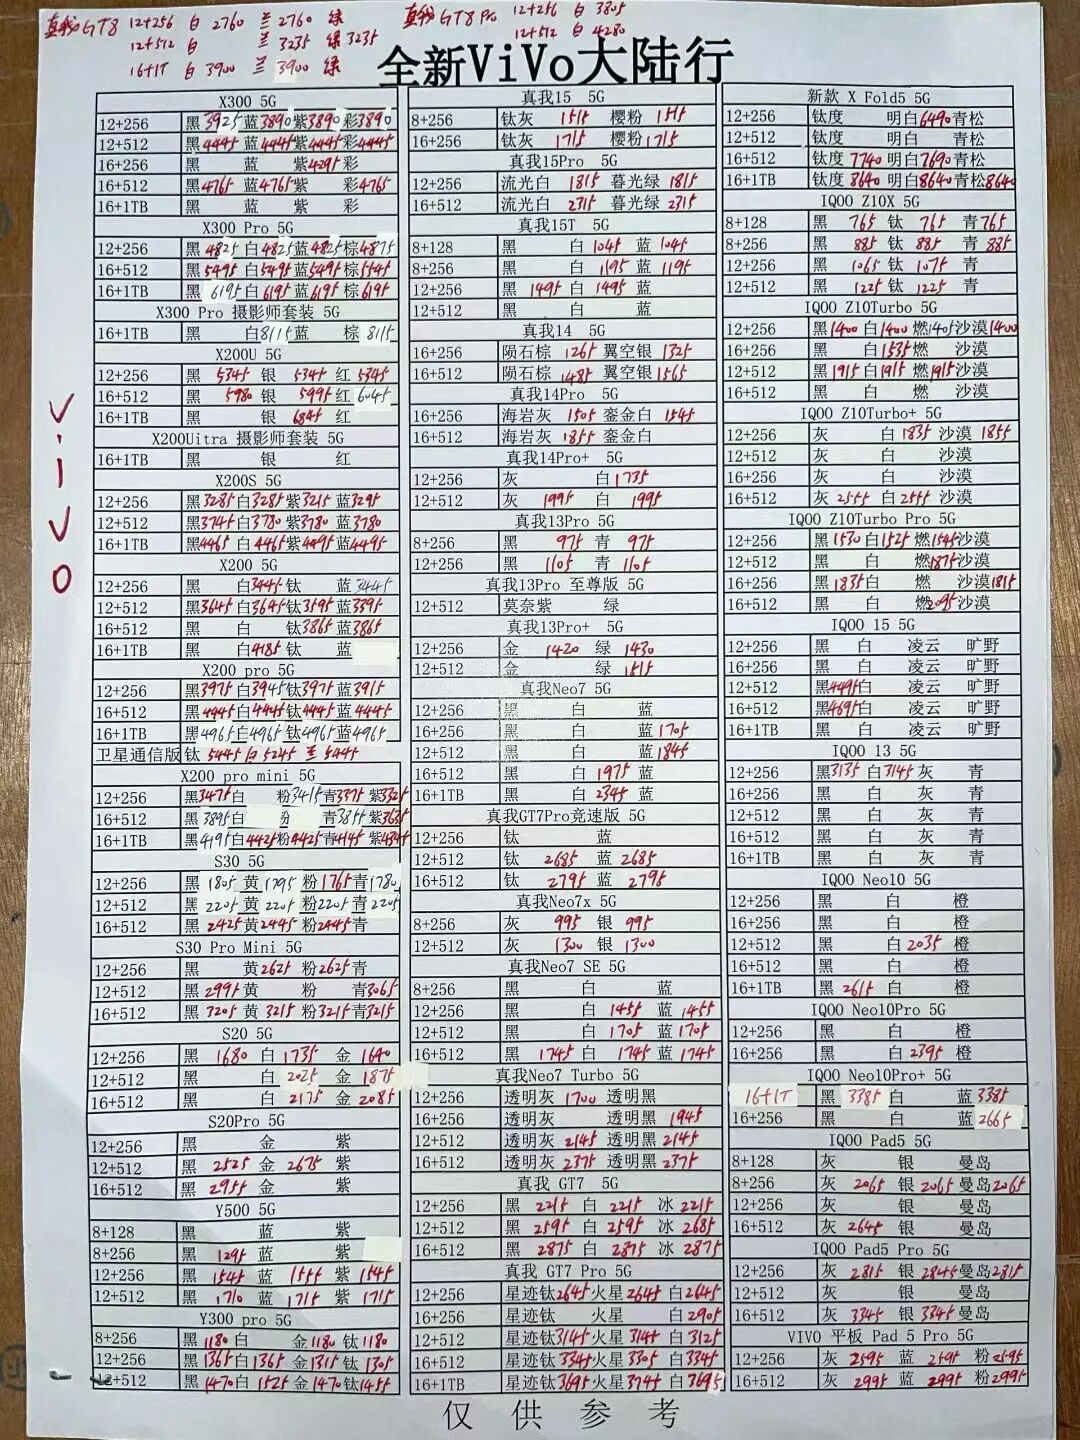 真我GT8 12+256 白 2760 兰 2760 绿
12+512 白 兰 3235 绿 3235
16+1T 白 3900 兰 3900 绿
真我GT8 Pro 12+256 白 3805
12+512 白 4280
全新ViVo大陆行
ViVO
X300 5G
12+256 黑 3925 蓝 3890 紫 3890 彩 3890
12+512 黑 4445 蓝 4445 紫 4445 彩 4445
16+256 黑 蓝 紫 4295 彩
16+512 黑 4765 蓝 4765 紫 彩 4765
16+1TB 黑 蓝 紫 彩
X300 Pro 5G
12+256 黑 4825 白 4825 蓝 4825 棕 4875
16+512 黑 5495 白 5495 蓝 5495 棕 5545
16+1TB 黑 6195 白 6195 蓝 6195 棕 6195
X300 Pro 摄影师套装 5G
16+1TB 黑 白 8115 蓝 棕 8115
X200U 5G
12+256 黑 5345 银 5345 红 5345
16+512 黑 5980 银 5995 红 6045
16+1TB 黑 银 6845 红
X200Uitra 摄影师套装 5G
16+1TB 黑 银 红
X200S 5G
12+256 黑 3285 白 3285 紫 3215 蓝 3295
12+512 黑 3745 白 3780 紫 3780 蓝 3780
16+1TB 黑 4465 白 4465 紫 4495 蓝 4495
X200 5G
12+256 黑 白 3445 钛 蓝 3445
12+512 黑 3645 白 3695 钛 3595 蓝 3395
16+512 黑 白 钛 3865 蓝 3865
16+1TB 黑 白 4185 钛 蓝
X200 pro 5G
12+256 黑 3975 白 3945 钛 3975 蓝 3915
16+512 黑 4445 白 4445 钛 4445 蓝 4445
16+1TB 黑 4965 白 4965 钛 4965 蓝 4965
卫星通信版 钛 5445 白 5245 兰 5445
X200 pro mini 5G
12+256 黑 3475 白 粉 3415 青 3375 紫 3325
16+512 黑 3895 白 粉 青 3855 紫 3635
16+1TB 黑 4195 白 4425 粉 4425 青 4145 紫 4345
S30 5G
12+256 黑 1805 黄 1795 粉 1765 青 1780
12+512 黑 2205 黄 2205 粉 2205 青 2205
16+512 黑 2425 黄 2445 粉 2445 青
S30 Pro Mini 5G
12+256 黑 黄 2625 粉 2625 青
12+512 黑 2995 黄 粉 青 3065
16+512 黑 3205 黄 3215 粉 3215 青 3215
S20 5G
12+256 黑 1680 白 1735 金 1640
12+512 黑 白 2025 金 1875
16+512 黑 白 2175 金 2085
S20Pro 5G
12+256 黑 金 紫
12+512 黑 2525 金 2675 紫
16+512 黑 2955 金 紫
Y500 5G
8+128 黑 蓝 紫
8+256 黑 1295 蓝 紫
12+256 黑 1545 蓝 1555 紫 1545
12+512 黑 1710 蓝 1715 紫 1715
Y300 pro 5G
8+256 黑 1180 白 金 1180 钛 1180
12+256 黑 1365 白 1365 金 1315 钛 1305
12+512 黑 1470 白 1525 金 1470 钛 1455
真我15 5G
8+256 钛灰 1515 樱粉 1515
16+256 钛灰 1715 樱粉 1715
真我15Pro 5G
12+256 流光白 1815 暮光绿 1815
16+512 流光白 2315 暮光绿 2315
真我15T 5G
8+128 黑 白 1045 蓝 1045
8+256 黑 白 1195 蓝 1195
12+256 黑 1495 白 1495 蓝
12+512 黑 白 蓝
真我14 5G
16+256 陨石棕 1265 翼空银 1325
16+512 陨石棕 1485 翼空银 1565
真我14Pro 5G
16+256 海岩灰 1505 銮金白 1545
16+512 海岩灰 1855 銮金白
真我14Pro+ 5G
12+256 灰 白 1735
12+512 灰 1995 白 1995
真我13Pro 5G
8+256 黑 975 青 975
12+256 黑 1105 青 1105
真我13Pro 至尊版 5G
12+512 莫奈紫 绿
真我13Pro+ 5G
12+256 金 1420 绿 1430
12+512 金 绿 1515
真我Neo7 5G
12+256 黑 白 蓝
16+256 黑 白 蓝 1705
12+512 黑 白 蓝 1845
16+512 黑 白 1975 蓝
16+1TB 黑 白 2345 蓝
真我GT7Pro竞速版 5G
12+256 钛 蓝
12+512 钛 2685 蓝 2685
16+512 钛 2795 蓝 2795
真我Neo7x 5G
8+256 灰 995 银 995
12+512 灰 1300 银 1300
真我Neo7 SE 5G
8+256 黑 白 蓝
12+256 黑 白 1455 蓝 1455
12+512 黑 白 1705 蓝 1705
16+512 黑 1745 白 1745 蓝 1745
真我Neo7 Turbo 5G
12+256 透明灰 1700 透明黑
16+256 透明灰 透明黑 1945
12+512 透明灰 2145 透明黑 2145
16+512 透明灰 2375 透明黑 2375
真我 GT7 5G
12+256 黑 2215 白 2215 冰 2215
12+512 黑 2595 白 2595 冰 2685
16+512 黑 2875 白 2875 冰 2875
真我 GT7 Pro 5G
12+256 星迹钛 2645 火星 2645 白 2645
16+256 星迹钛 火星 白 2905
12+512 星迹钛 3145 火星 3145 白 3125
16+512 星迹钛 3345 火星 3305 白 3345
16+1TB 星迹钛 3695 火星 3745 白 3695
新款 X Fold5 5G
12+256 钛度 明白 6490 青松
12+512 钛度 明白 青松
16+512 钛度 7740 明白 7690 青松
16+1TB 钛度 8640 明白 8640 青松 8640
IQOO Z10X 5G
8+128 黑 765 钛 765 青 765
8+256 黑 885 钛 885 青 885
12+256 黑 1065 钛 1075 青
12+512 黑 1225 钛 1225 青
IQOO Z10Turbo 5G
12+256 黑 1400 白 1400 燃 1405 沙漠 1400
16+256 黑 白 1535 燃 沙漠
12+512 黑 1915 白 1915 燃 1915 沙漠
16+512 黑 白 燃 沙漠
IQOO Z10Turbo+ 5G
12+256 灰 白 1835 沙漠 1855
12+512 灰 白 沙漠
16+256 灰 白 沙漠
16+512 灰 2555 白 2555 沙漠
IQOO Z10Turbo Pro 5G
12+256 黑 1530 白 1525 燃 1545 沙漠
12+512 黑 白 燃 1875 沙漠
16+256 黑 1835 白 燃 沙漠 1815
16+512 黑 白 燃 2095 沙漠
IQOO 15 5G
12+256 黑 白 凌云 旷野
16+256 黑 白 凌云 旷野
12+512 黑 4495 白 凌云 旷野
16+512 黑 4695 白 凌云 旷野
16+1TB 黑 白 凌云 旷野
IQOO 13 5G
12+256 黑 3135 白 3145 灰 青
16+256 黑 白 灰 青
12+512 黑 白 灰 青
16+512 黑 白 灰 青
16+1TB 黑 白 灰 青
IQOO Neo10 5G
12+256 黑 白 橙
16+256 黑 白 橙
12+512 黑 白 2035 橙
16+512 黑 白 橙
16+1TB 黑 2615 白 橙
IQOO Neo10Pro 5G
12+256 黑 白 橙
16+256 黑 白 2395 橙
IQOO Neo10Pro+ 5G
16+1T 黑 3385 白 蓝 3385
16+256 黑 白 蓝 2665
IQOO Pad5 5G
8+128 灰 银 曼岛
8+256 灰 2065 银 2065 曼岛 2065
12+256 灰 银 曼岛
16+512 灰 2645 银 曼岛
IQOO Pad5 Pro 5G
12+256 灰 2815 银 2845 曼岛 2815
12+512 灰 银 曼岛
16+512 灰 3345 银 3345 曼岛
VIVO 平板 Pad 5 Pro 5G
12+256 灰 2595 蓝 2595 粉 2595
16+512 灰 2995 蓝 2995 粉 2995
仅供参考